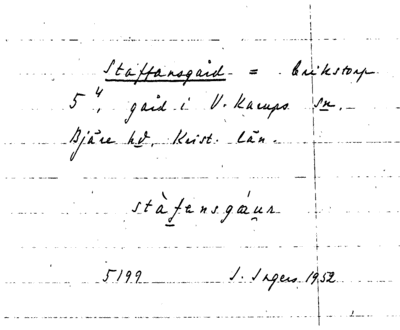 Staffansgård = Erikstorp
5⁴, gård i V. Karups sn.
Bjäre hd. Krist. län.
stàfensgáun
5199 I. Ingers 1952